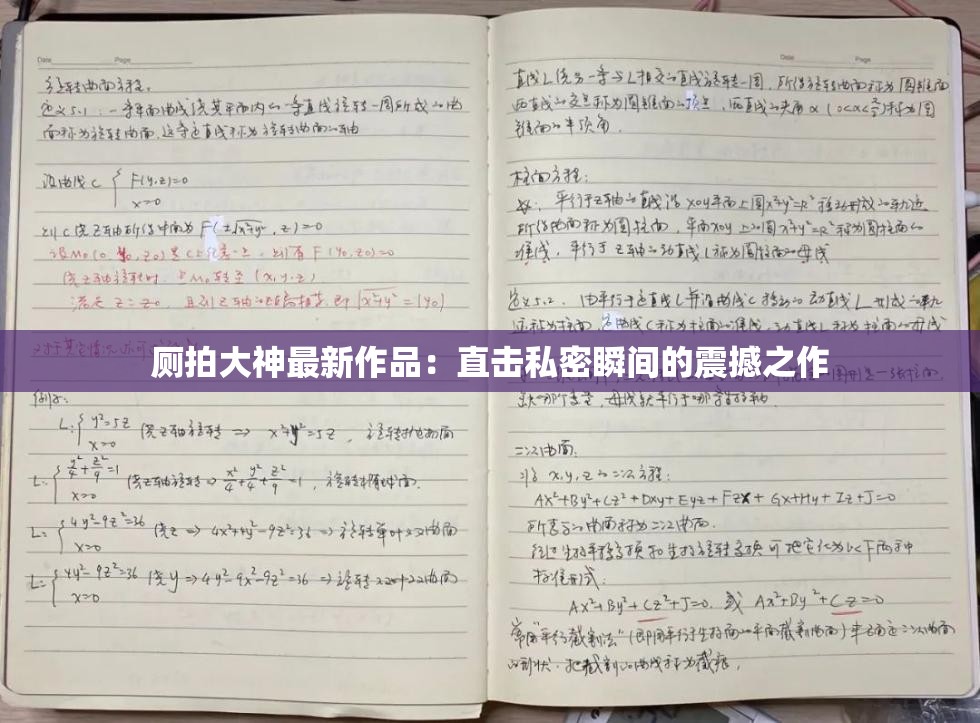 Date Page
旋转曲面方程。
定义5.1：一条平面曲线绕其平面内的一条直线旋转一周所成的曲
面称为旋转曲面，这条定直线称为旋转曲面的轴
设曲线C { F(y,z)=0
x=0
则C绕Z轴所得曲面为 F(±√x²+y², z)=0
设M₀(0, y₀, z₀)是C上任意一点，则有 F(y₀,z₀)=0
绕z轴旋转时，点M₀转至(x,y,z)
满足 z=z₀，且到Z轴的距离相等，即 √x²+y² = |y₀|
例：
L:{ y²=5z
x=0 绕z轴旋转 ⇒ x²+y²=5z，旋转抛物面
L:{ y²/4+z²/9=1
x=0 绕z轴旋转 ⇒ x²/4+y²/4+z²/9=1，旋转椭球面.
L:{ 4y²-9z²=36
x=0 绕z ⇒ 4x²+4y²-9z²=36 ⇒ 旋转单叶双曲面
L:{ 4y²-9z²=36
x=0 绕y ⇒ 4y²-9x²-9z²=36 ⇒ 旋转双叶双曲面
Date Page
直线L绕另一条与L相交的直线旋转一周，所得旋转曲面称为圆锥面
两直线的交点称为圆锥面的顶点，两直线的夹角α(0<α<π/2)称为圆
锥面的半顶角.
柱面方程：
平行于Z轴的直线沿xoy平面上圆x²+y²=R²移动形成的轨迹
所得曲面称为圆柱面，平面xoy上的圆x²+y²=R²称为圆柱面的
准线，平行于Z轴的动直线L称为圆柱面的母线
定义5.2. 由平行于定直线L并沿曲线C移动的动直线L形成的轨
厕拍大神最新作品：直击私密瞬间的震撼之作
缺哪个变量，母线就平行于哪条坐标轴.
二次曲面.
x,y,z的二次方程：
Ax²+By²+Cz²+Dxy+Eyz+Fzx+Gx+Hy+Iz+J=0
所表示的曲面称为二次曲面.
经过坐标平移变换和坐标旋转变换可把它化为以下两种
标准形式：
Ax²+By²+Cz²+J=0. 或 Ax²+By²+Cz=0
常用“平行截割法”(即用平行于坐标面的平面截割曲面)来确定二次曲面
的形状. 把截割的曲线称为截痕.